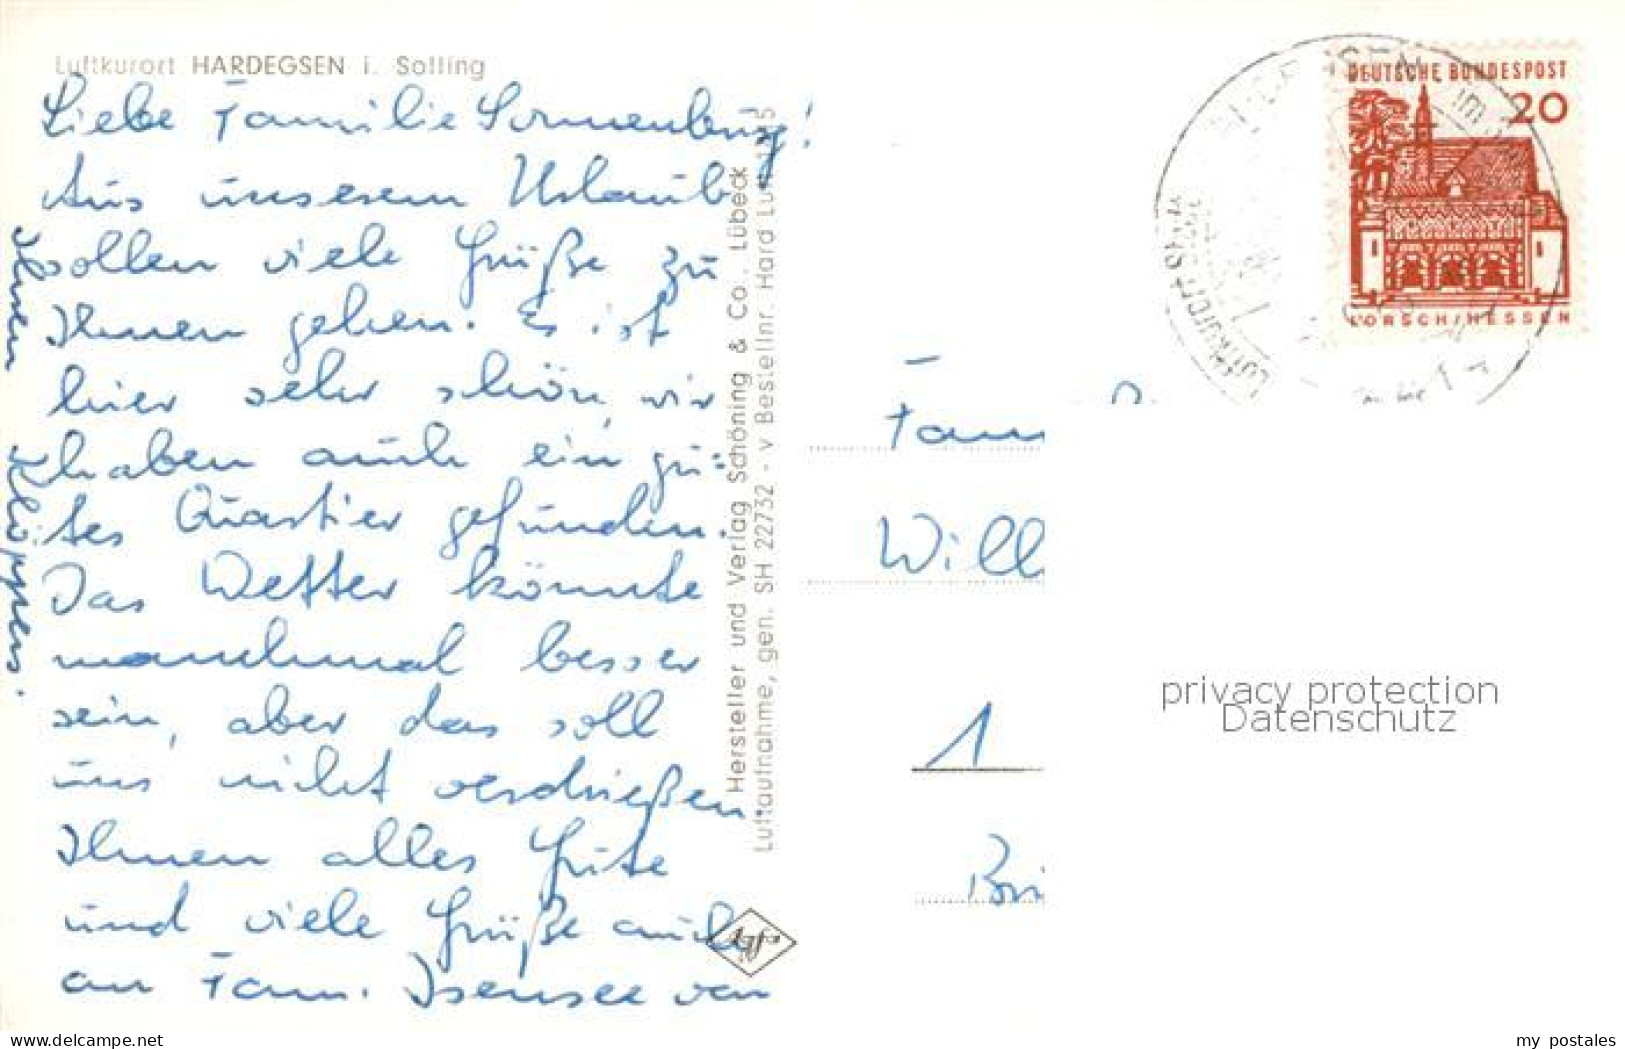 Luftkurort HARDEGSEN i. Solling
Liebe Familie Sonnenburg!
Aus unserem Urlaub
sollen viele Grüße zu
Ihnen gehen. Es ist
hier sehr schön, wir
haben auch ein gu-
tes Quartier gefunden.
Das Wetter könnte
manchmal besser
sein, aber das soll
uns nicht verdrießen.
Ihnen alles Gute
und viele Grüße auch
an Fam. Isensee von
Ihren Klöppers.
Hersteller und Verlag Schöning & Co., Lübeck
Luftaufnahme, gen. SH 22732 - v Bestellnr. Hard Lu
DEUTSCHE BUNDESPOST
20
LORSCH/HESSEN
Luftkurort
Fam
Will
1
Bri
privacy protection
Datenschutz
delcampe.net
my_postales